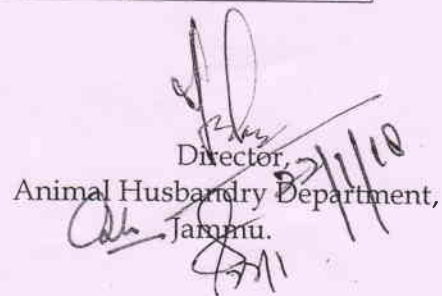 Director,
Animal Husbandry Department,
Jammu.